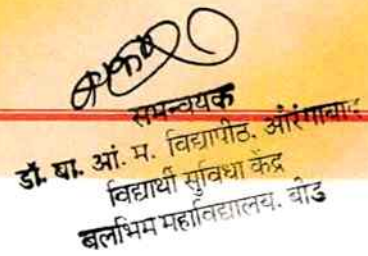 समन्वयक
डॉ. बा. आं. म. विद्यापीठ. औरंगाबाद
विद्यार्थी सुविधा केंद्र
बलभिम महाविद्यालय. बीड